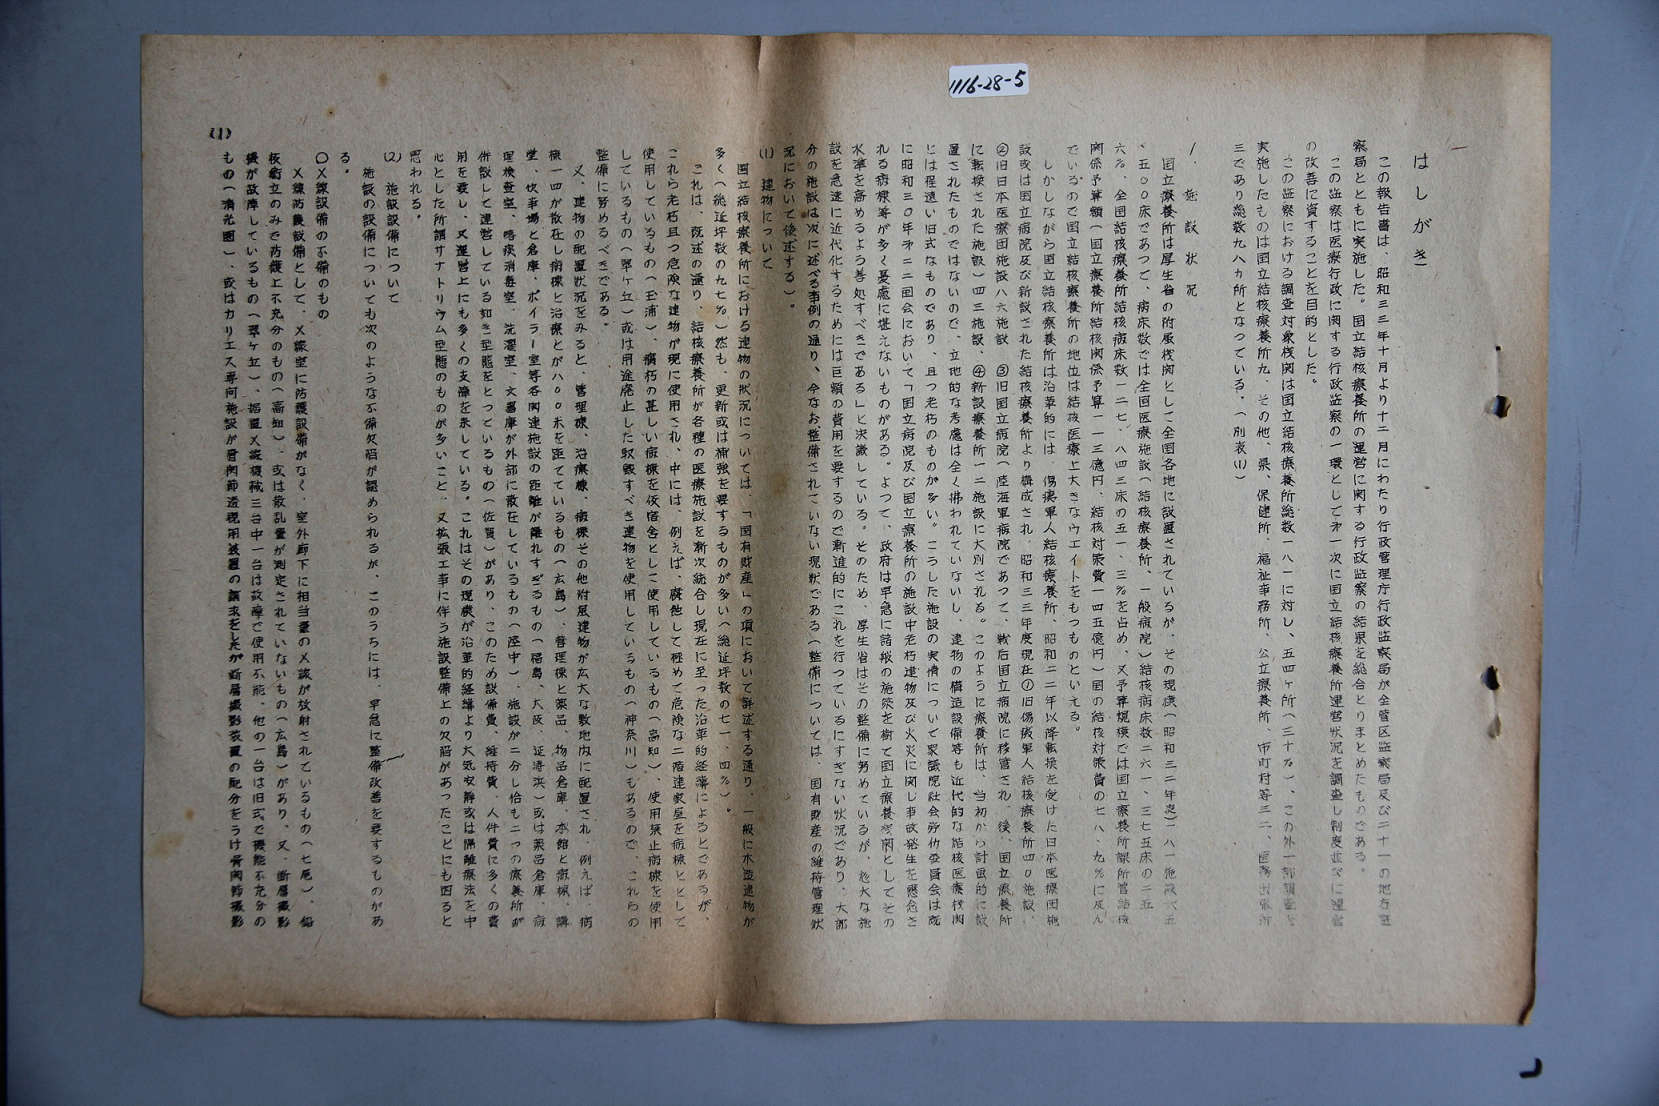 1116-28-5
はしがき
この報告書は、昭和三三年十月より十二月にわたり行政管理庁行政監察局が全管区監察局及び二十一の地方監
察局とともに実施した。国立結核療養所の運営に関する行政監察の結果を総合とりまとめたものである。
この監察は医療行政に関する行政監察の一環として才一次に国立結核療養所運営状況を調査し制度並びに運営
の改善に資することを目的とした。
この監察における調査対象機関は国立結核療養所総数一八一に対し、五四ヶ所(三十%)、この外一部調査を
実施したものは国立結核療養所九、その他、県、保健所、福祉事務所、公立療養所、市町村等三二、医務出張所
三であり総数九八ヵ所となつている。(別表(1))
1. 施設状況
国立療養所は厚生省の附属機関として全国各地に設置されているが、その規模(昭和三二年度)一八一施設六五
、五〇〇床であつて、病床数では全国医療施設(結核療養所、一般病院)結核病床数二六一、三七五床の二五
六%、全国結核療養所結核病床数一二七、八四三床の五一、三%を占め、又予算規模では国立療養所課所管結核
関係予算額(国立療養所結核関係予算一一三億円、結核対策費一四五億円)国の結核対策費の七八、九%に及ん
でいるので国立結核療養所の地位は結核医療上大きなウエイトをもつものといえる。
しかしながら国立結核療養所は沿革的には、傷痍軍人結核療養所、昭和二二年以降転換を受けた日本医療団施
設或は国立病院及び新設された結核療養所より構成され、昭和三三年度現在①旧傷痍軍人結核療養所四〇施設、
②旧日本医療団施設八六施設 ③旧国立病院(陸海軍病院であつて、戦后国立病院に移管され、後、国立療養所
に転換された施設)四三施設、④新設療養所一二施設に大別される。このように療養所は、当初から計画的に設
置されたものではないので、立地的な考慮は全く拂われていないし、建物の構造設備等も近代的な結核医療機関
とは程遠い旧式なものであり、且つ老朽のものが多い。こうした施設の実情について衆議院社会労仂委員会は既
に昭和三〇年才二二国会において「国立病院及び国立療養所の施設中老朽建物及び火災に関し事故発生を懸念さ
れる病棟等が多く憂慮に堪えないものがある。よつて、政府は早急に諸般の施策を樹て国立療養機関としてその
水準を高めるよう善処すべきである」と決議している。そのため、厚生省はその整備に努めているが、尨大な施
設を急速に近代化するためには巨額の費用を要するので漸進的にこれを行つているにすぎない状況であり、大部
分の施設は次に述べる事例の通り、今なお整備されていない現状である(整備については、国有財産の維持管理状
況において後述する)。
(1) 建物について
国立結核療養所における建物の状況については、「国有財産」の項において詳述する通り、一般に木造建物が
多く(総延坪数の九七%)然も、更新或は補強を要するものが多い(総延坪数の七一、四%)。
これは、既述の通り、結核療養所が各種の医療施設を漸次統合し現在に至つた沿革的経緯によるとであるが、
これら老朽且つ危険な建物が現に使用され、中には、例えば、腐蝕して極めて危険な二階建家屋を病棟として
使用しているもの(玉浦)、腐朽の甚しい病棟を仮宿舎として使用しているもの(高知)、使用禁止病棟を使用
しているもの(翠ヶ丘)或は用途廃止した取毀すべき建物を使用しているもの(神奈川)もあるので、これらの
整備に努めるべきである。
又、建物の配置状況をみると、管理棟、治療棟、病棟その他附属建物が広大な敷地内に配置され、例えば、病
棟一四が散在し病棟と治療とが八〇〇米を距てているもの(広島)、管理棟と薬品、物品倉庫、本館と病棟、講
堂、炊事場と倉庫、ボイラー室等各関連施設の距離が離れすぎるもの(福島、大阪、近畿浜)或は薬品倉庫、病
理検査室、喀痰消毒室、洗濯室、文書庫が外部に散在しているもの(陸中)、施設が二分し恰も二つの療養所が
併設して運営している如き型態をとつているもの(佐賀)があり、このため設備費、維持費、人件費に多くの費
用を要し、又運営上にも多くの支障を来している。これはその規模が沿革的経緯より大気安静或は隔離療法を中
心とした所謂サナトリウム型態のものが多いこと、又拡張工事に伴う施設整備上の欠陥があつたことにも因ると
思われる。
(2) 施設設備について
施設の設備についても次のような不備欠陥が認められるが、このうちには、早急に整備改善を要するものがあ
る。
〇X線設備の不備のもの
X線防護設備として、X線室に防護設備がなく、室外廊下に相当量のX線が放射されているもの(七尾)、鉛
板衝立のみで防護上不充分のもの(高知)、或は散乱量が測定されていないもの(広島)があり、又、断層撮影
機が故障しているもの(翠ヶ丘)、据置X線機械三台中一台は故障で使用不能、他の一台は旧式で機能不充分の
もの(清光園)、或はカリエス専門施設が骨関節透視用装置の請求をしたが断層撮影装置の配分をうけ骨関節撮影
(1)